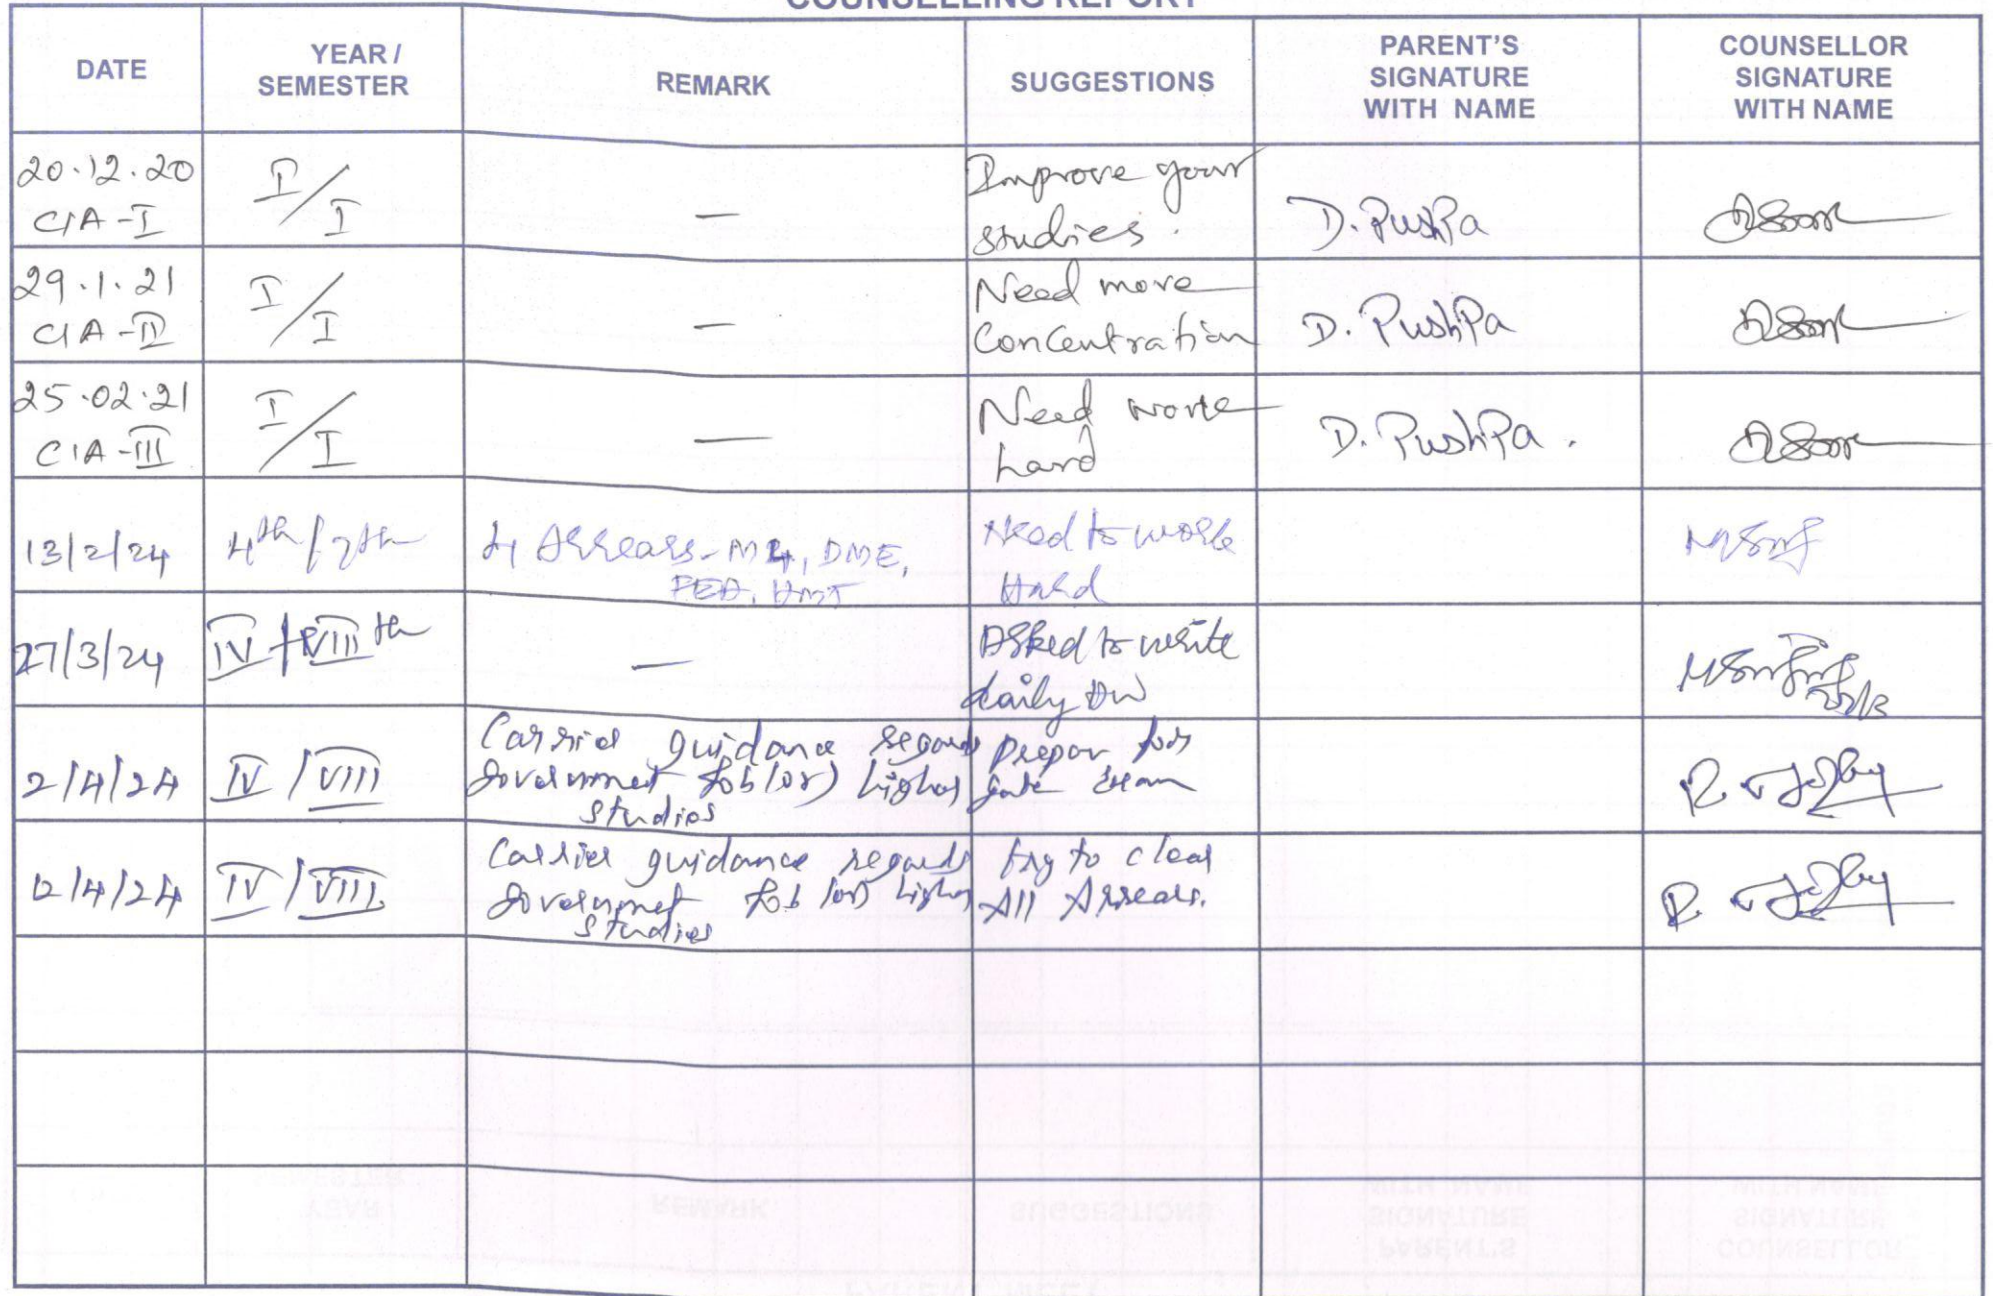 COUNSELLING REPORT
DATE
YEAR / SEMESTER
REMARK
SUGGESTIONS
PARENT'S SIGNATURE WITH NAME
COUNSELLOR SIGNATURE WITH NAME
20.12.20
CIA-I
I/I
—
Improve your
studies
D. PushPa
29.1.21
CIA-II
I/I
—
Need more
Concentration
D. PushPa
25.02.21
CIA-III
I/I
—
Need worke
hard
D. PushPa.
13/2/24
4th/7th
4 Arrears- M4, DME,
FEA, HMT
Need to work
Hard
27/3/24
IV/VIIIth
—
Asked to write
daily HW
2/4/24
IV/VIII
Carrier guidance regards
Government Job (or) higher
studies
Prepar for
Gate exam
12/4/24
IV/VIII
Carrier guidance regards
Government Job (or) higher
studies
try to clear
All Arrears.